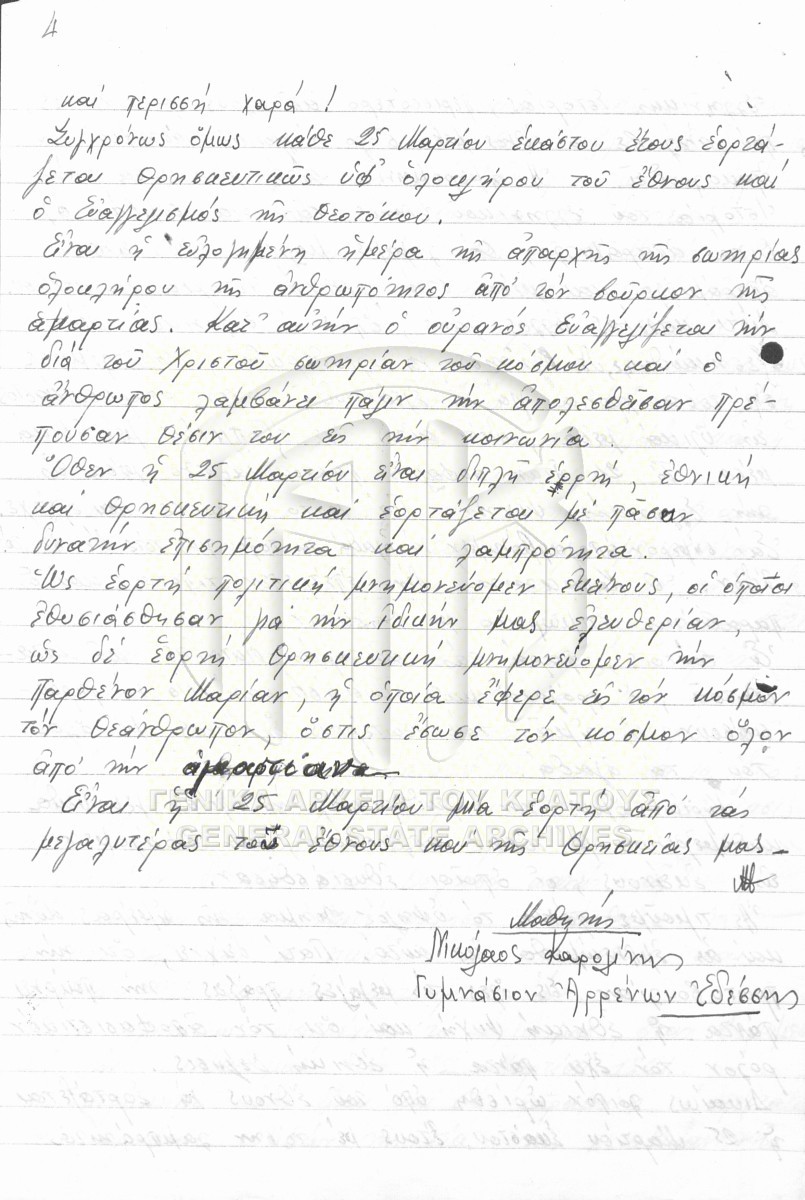 4
καί περισσή χαρά!
Συγχρόνως ὅμως κάθε 25 Μαρτίου ἑκάστου ἔτους ἑορτά-
ζεται θρησκευτικῶς ὑφ' ὁλοκλήρου τοῦ ἔθνους καί
ὁ Εὐαγγελισμός τῆς Θεοτόκου.
Εἶναι ἡ εὐλογημένη ἡμέρα τῆς ἀπαρχῆς τῆς σωτηρίας
ὁλοκλήρου τῆς ἀνθρωπότητος ἀπό τόν βοῦρκον τῆς
ἁμαρτίας. Κατ' αὐτήν ὁ οὐρανός Εὐαγγελίζεται τήν
διά τοῦ Χριστοῦ σωτηρίαν τοῦ κόσμου καί ὁ
ἄνθρωπος λαμβάνει πάλιν τήν ἀπολεσθεῖσαν πρέ-
πουσαν θέσιν του εἰς τήν κοινωνία.
Ὅθεν ἡ 25 Μαρτίου εἶναι διπλῆ ἑορτή, ἐθνική
καί θρησκευτική καί ἑορτάζεται μέ πᾶσαν
δυνατήν ἐπισημότητα καί λαμπρότητα.
Ὡς ἑορτή πολιτική μνημονεύομεν ἐκείνους, οἱ ὁποῖοι
ἐθυσιάσθησαν γιά τήν ἰδικήν μας ἐλευθερίαν,
ὡς δέ ἑορτή θρησκευτική μνημονεύομεν τήν
Παρθένον Μαρίαν, ἡ ὁποία ἔφερε εἰς τόν κόσμον
τόν Θεάνθρωπον, ὅστις ἔσωσε τόν κόσμον ὅλον
ἀπό τήν ἁμαρτίαν
Εἶναι ἡ 25 Μαρτίου μία ἑορτή ἀπό τάς
μεγαλυτέρας τοῦ ἔθνους και τῆς Θρησκείας μας_
ΓΕΝΙΚΑ ΑΡΧΕΙΑ ΤΟΥ ΚΡΑΤΟΥΣ
GENERAL STATE ARCHIVES
Μαθητής
Νικόλαος Καρολίνης
Γυμνάσιον Ἀρρένων Ἐδέσσης